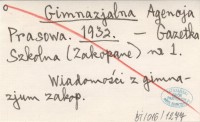 Gimnazjalna Agencja
Prasowa. 1932. — Gazetka
Szkolna (Zakopane) nr 1.
Wiadomości z gimna-
zjum zakop.